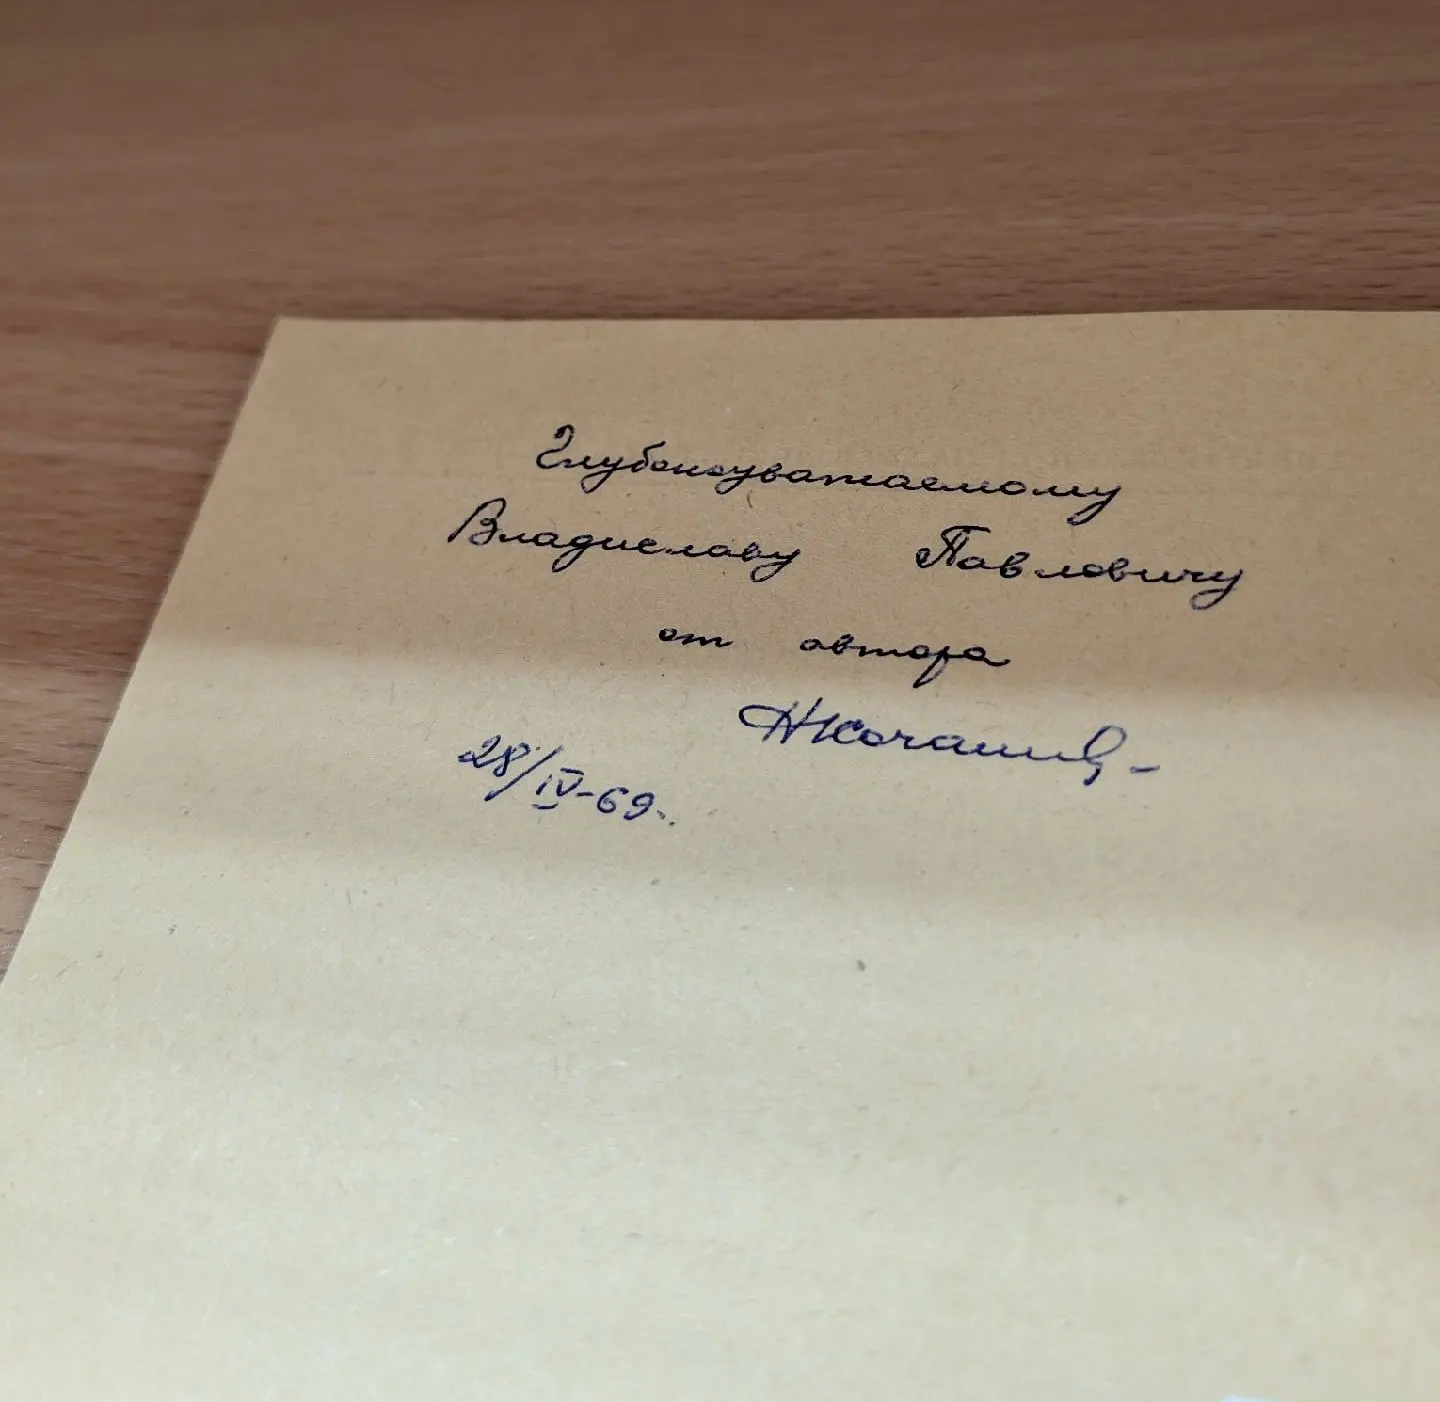 Глубокоуважаемому
Владиславу Павловичу
от автора
28/IV-69.